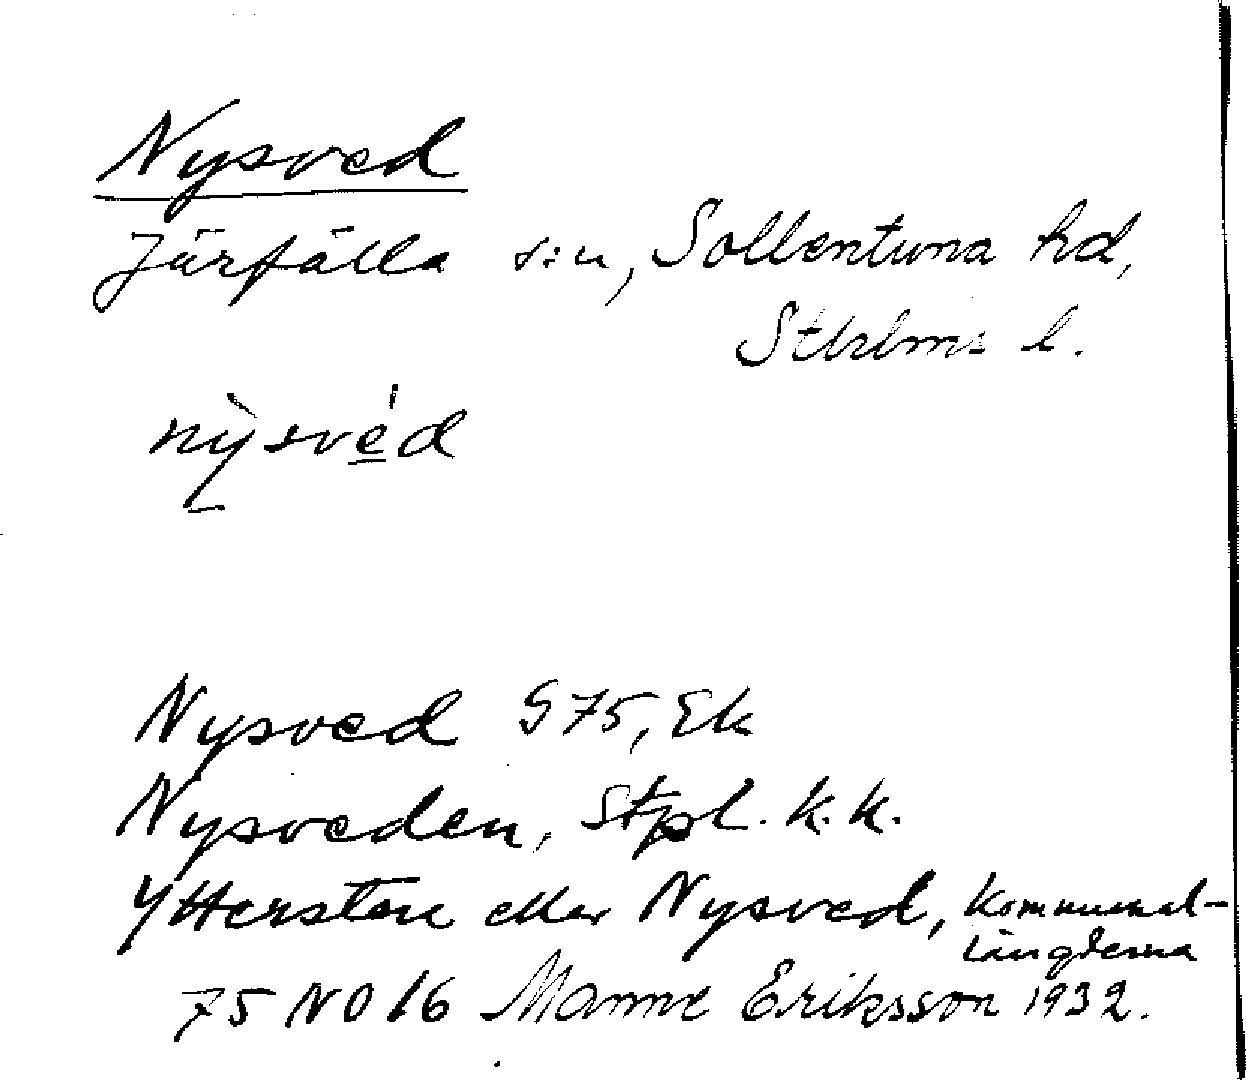 Nysved
Järfälla s:n, Sollentuna hd,
Sthlms l.
nỳsvéd
Nysved G75, Ek
Nysveden, Stpl. k.k.
Yttersten eller Nysved, Kommunal-
längderna
75 NO 16 Manne Eriksson 1932.